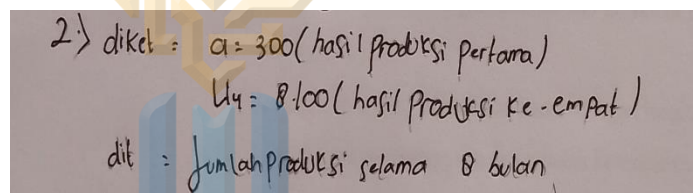 2.) diket : a = 300 (hasil produksi pertama)
U4 = 8.100 (hasil produksi ke-empat)
dit : Jumlah produksi selama 8 bulan